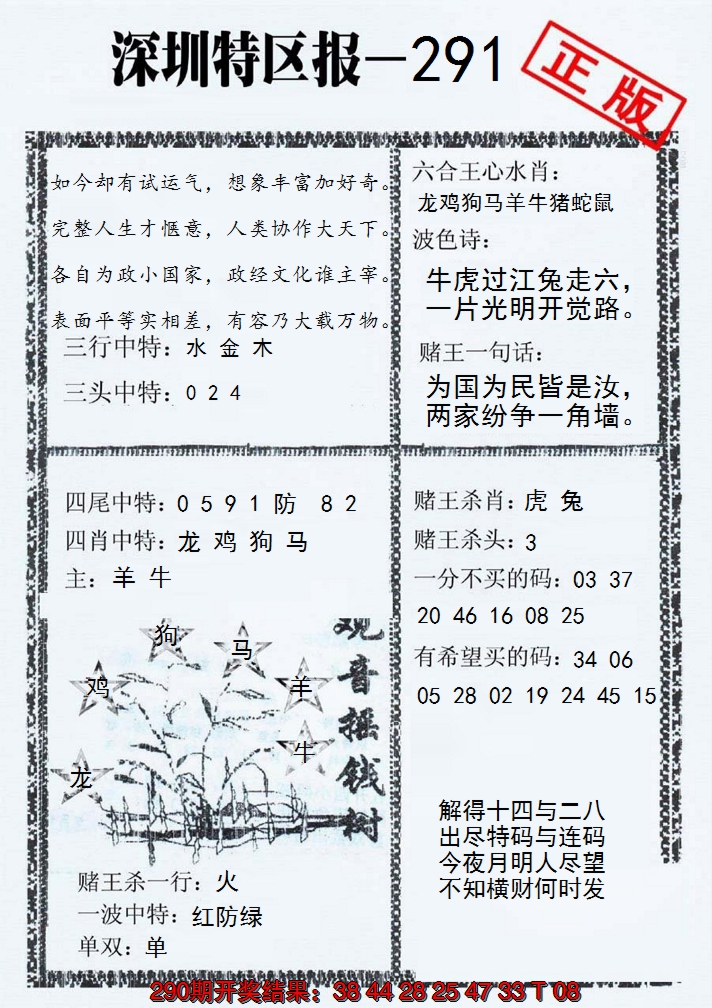 深圳特区报—291
正版
如今却有试运气，想象丰富加好奇。
完整人生才惬意，人类协作大天下。
各自为政小国家，政经文化谁主宰。
表面平等实相差，有容乃大载万物。
三行中特：水 金 木
三头中特：0 2 4
六合王心水肖：
龙鸡狗马羊牛猪蛇鼠
波色诗：
牛虎过江兔走六，
一片光明开觉路。
赌王一句话：
为国为民皆是汝，
两家纷争一角墙。
四尾中特：0 5 9 1 防 8 2
四肖中特：龙 鸡 狗 马
主：羊 牛
狗
马
鸡
羊
牛
龙
观音摇钱树
赌王杀一行：火
一波中特：红防绿
单双：单
赌王杀肖：虎 兔
赌王杀头：3
一分不买的码：03 37
20 46 16 08 25
有希望买的码：34 06
05 28 02 19 24 45 15
解得十四与二八
出尽特码与连码
今夜月明人尽望
不知横财何时发
290期开奖结果：38 44 28 25 47 33 T 08